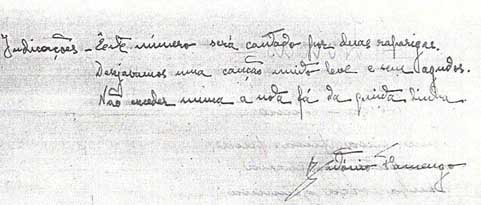 Indicações - Êste número será cantado por duas raparigas.
Desejavamos uma canção muito leve e sem agudos.
Não exceder nunca a nota fá da quinta linha.
António Lamengo